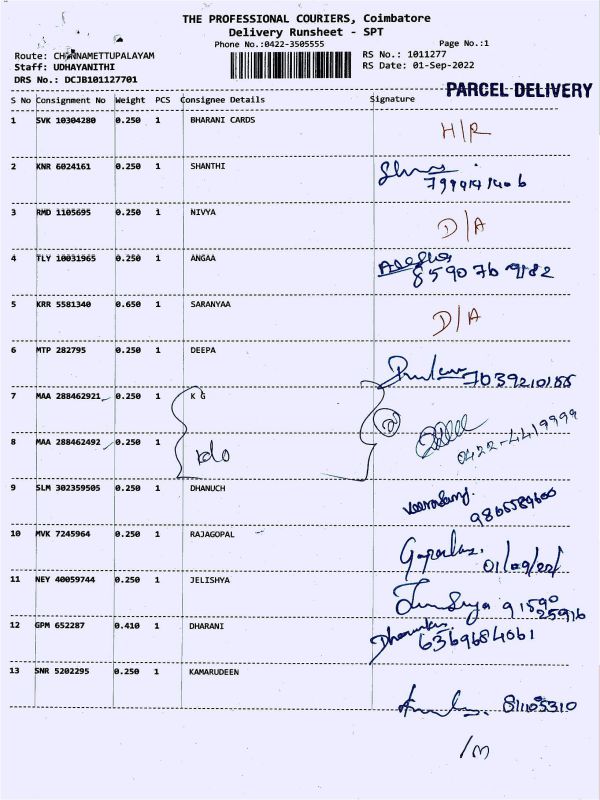 THE PROFESSIONAL COURIERS, Coimbatore
Delivery Runsheet - SPT
Phone No.:0422-3505555 Page No.:1
Route: CHINNAMETTUPALAYAM RS No.: 1011277
Staff: UDHAYANITHI RS Date: 01-Sep-2022
DRS No.: DCJB101127701
PARCEL DELIVERY
S No Consignment No Weight PCS Consignee Details Signature
1 SVK 10304280 0.250 1 BHARANI CARDS H/R
2 KNR 6024161 0.250 1 SHANTHI
3 RMD 1105695 0.250 1 NIVYA D/A
4 TLY 10031965 0.250 1 ANGAA
8590769182
5 KRR 5581340 0.650 1 SARANYAA D/A
6 MTP 282795 0.250 1 DEEPA
7 MAA 288462921 0.250 1 K G
8 MAA 288462492 0.250 1
0422-4419999
9 SLM 302359505 0.250 1 DHANUCH
10 MVK 7245964 0.250 1 RAJAGOPAL
01/09/22/
11 NEY 40059744 0.250 1 JELISHYA
91590
25916
12 GPM 652287 0.410 1 DHARANI
6369684061
13 SNR 5202295 0.250 1 KAMARUDEEN